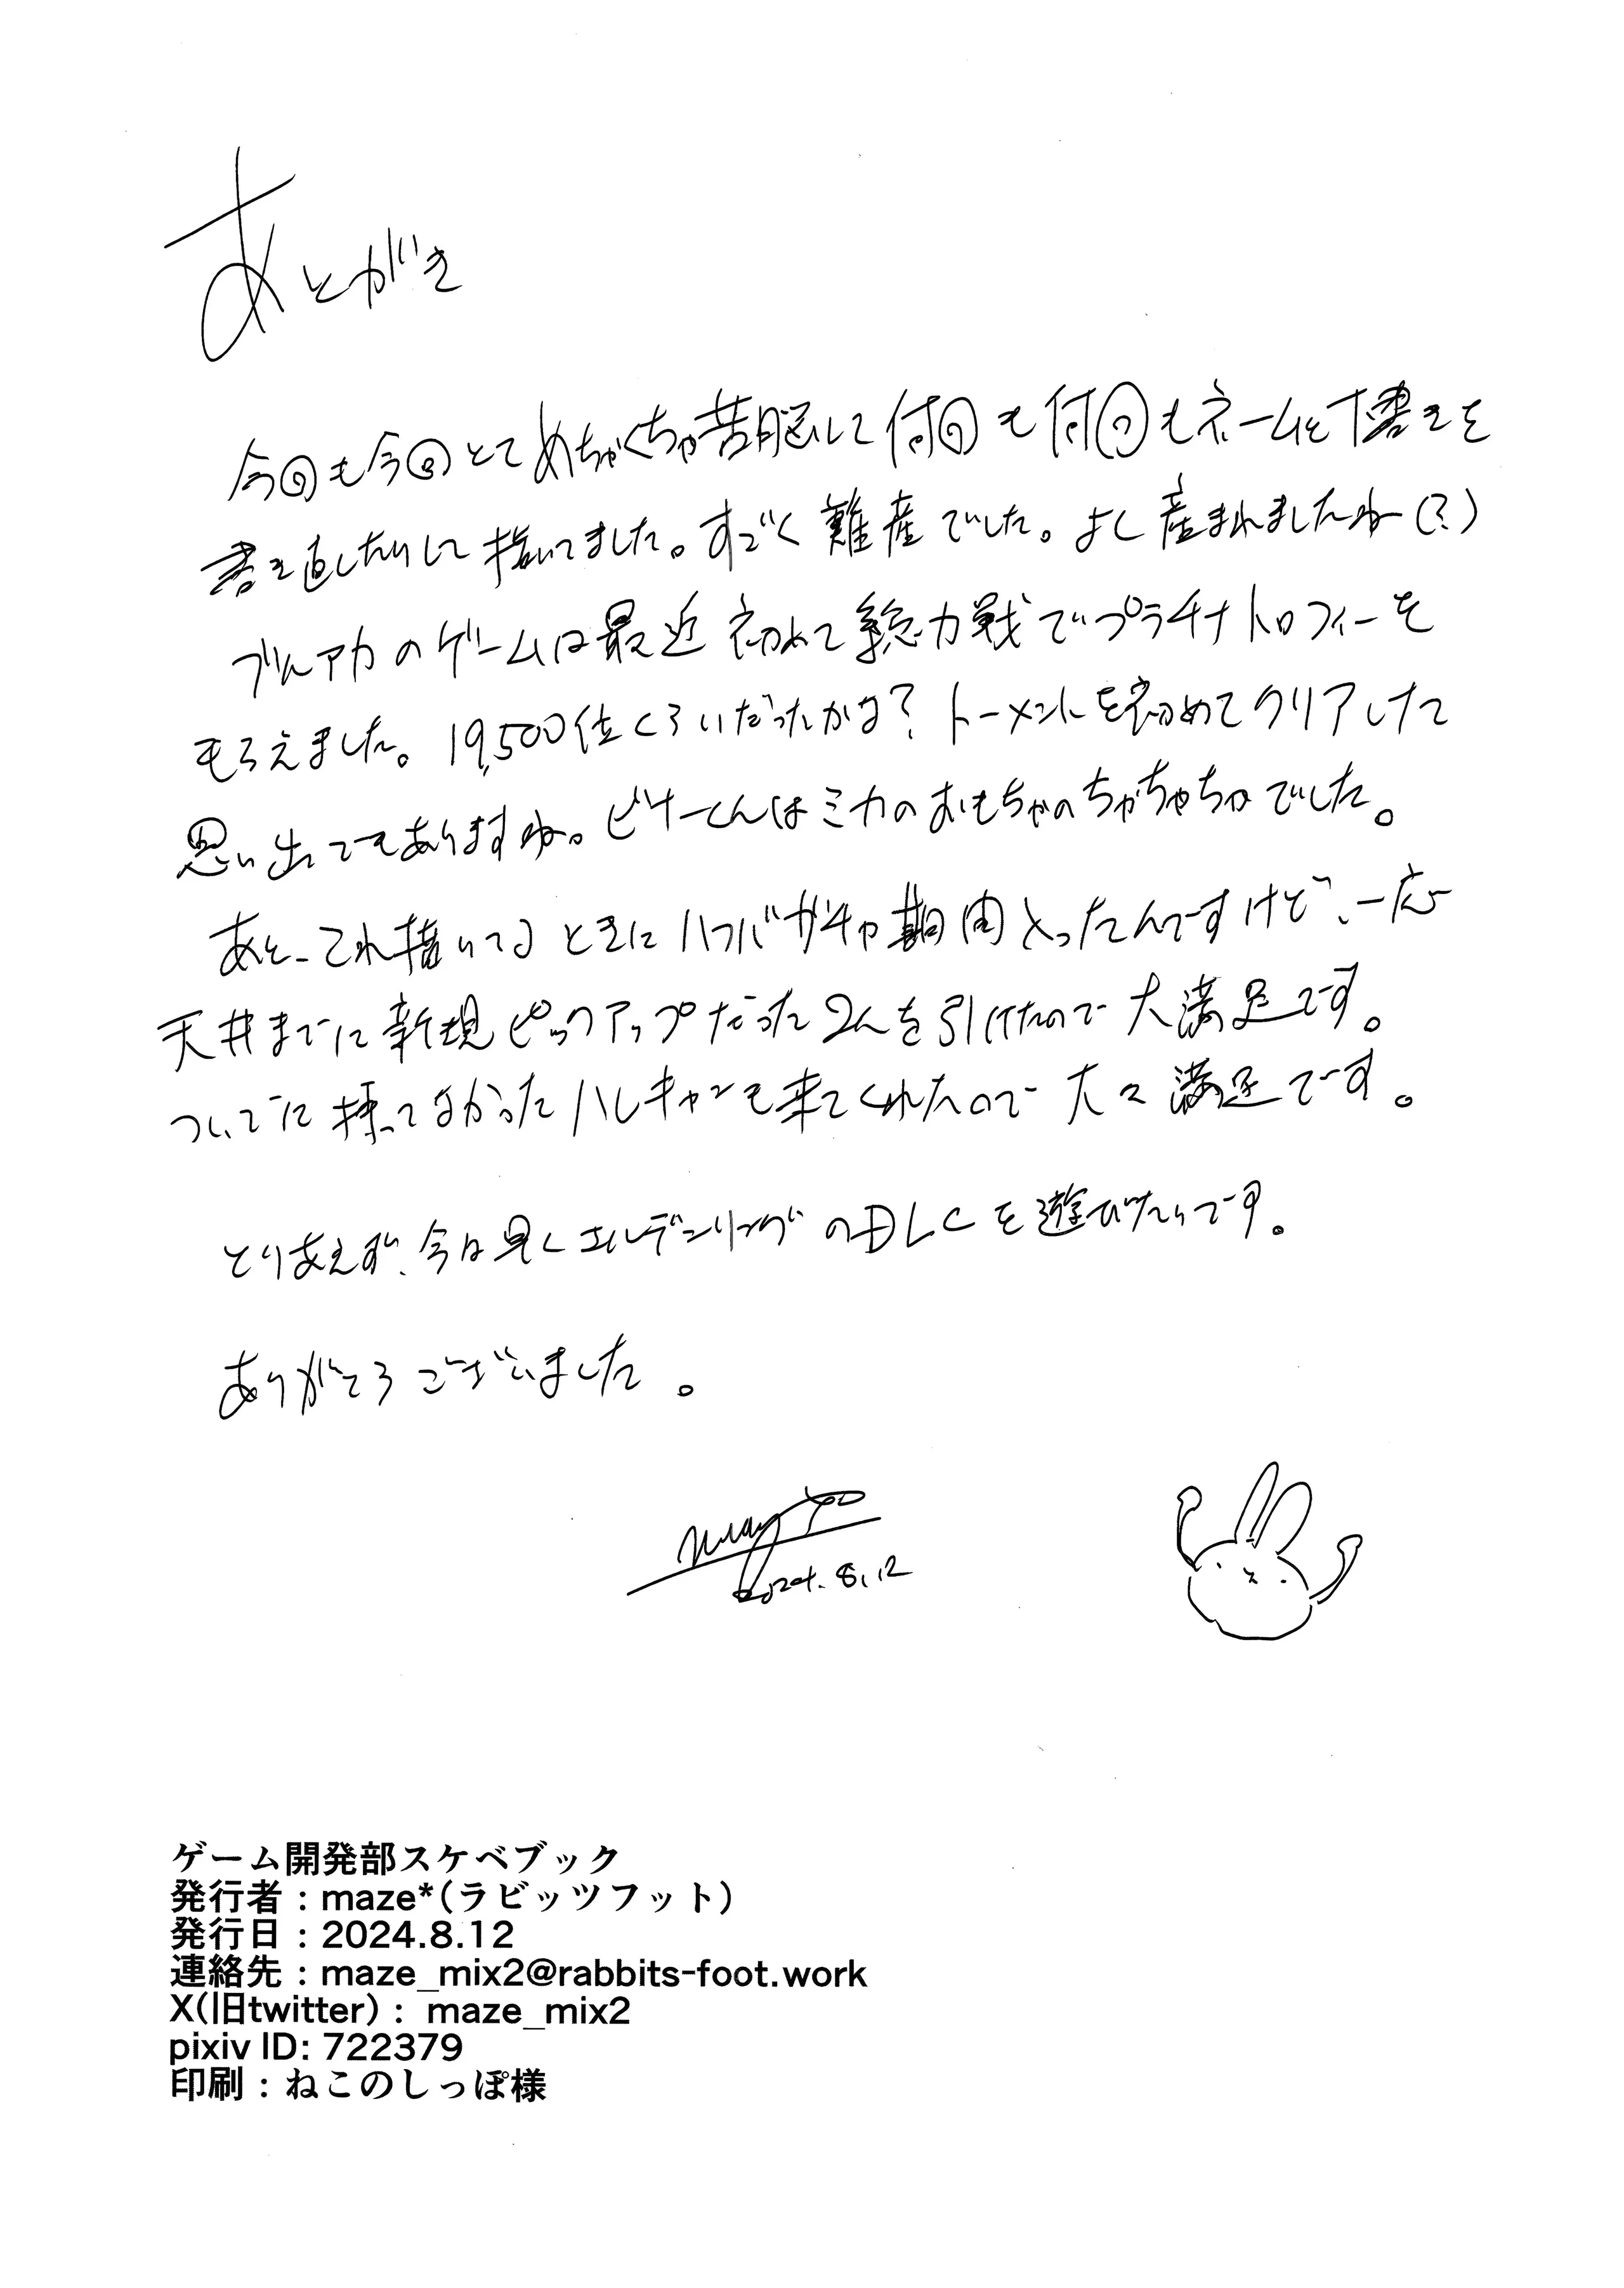 あとがき
今回も今回とてめちゃくちゃ苦悩して何回も何回もネームと下書きを
書き直したりして描いてました。すごく難産でした。よく産まれましたねー(?)
ブルアカのゲームは最近初めて総力戦でプラチナトロフィーを
もらえました。19,500位くらいだったかな?トーメントを初めてクリアしたて
思い出でもありますね。ビナーくんはミカのおもちゃのちゃちゃちゃでした。
あと、これ描いてるときにハフバガチャ期間入ったんですけど、一応
天井までに新規ピックアップだった2人を引けたので大満足です。
ついでに持ってなかったハレキャンも来てくれたので大々満足です。
とりあえず、今は早くエルデンリングのDLCを遊びたいです。
ありがとうございました。
2024.8.12
ゲーム開発部スケベブック
発行者:maze*(ラビッツフット)
発行日:2024.8.12
連絡先:maze_mix2@rabbits-foot.work
X(旧twitter): maze_mix2
pixiv ID: 722379
印刷:ねこのしっぽ様